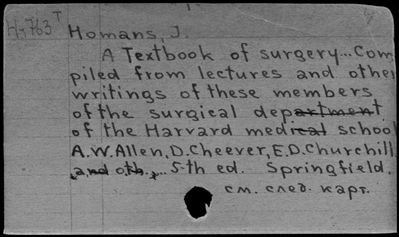 Hy763 T
Homans, J.
A Textbook of surgery... Com
piled from lectures and other
writings of these members
of the surgical department
of the Harvard medical school
A.W.Allen, D.Cheever, E.D.Churchill
and oth.,... 5-th ed. Springfield.
см. след. карт.